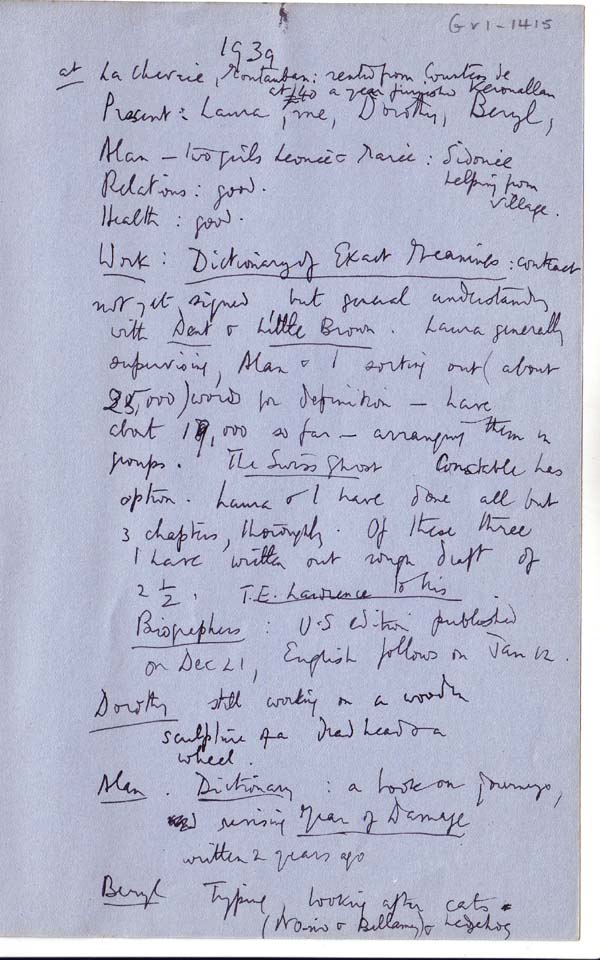 Gr1-1415
1939
at La Chevrie, Montauban: rented from Countess de Kerouallan
at £40 a year furnished
Present: Laura, me, Dorothy, Beryl,
Alan – two girls Leonie & Marie: Sidonie
helping from
village.
Relations: good.
Health: good.
Work: Dictionary of Exact Meanings: contract
not yet signed but general understanding
with Dent & Little Brown. Laura generally
supervising, Alan & I sorting out (about
25,000) words for definition – have
about 19,000 so far – arranging them in
groups. The Swiss Ghost Constable has
option. Laura & I have done all but
3 chapters, thoroughly. Of these three
I have written out rough draft of
2 1/2. T.E. Lawrence to his
Biographers: U-S edition published
on Dec 21, English follows on Jan 12.
Dorothy still working on a wooden
sculpture of a dead head & a
wheel.
Alan. Dictionary: a book on journeys,
revising Year of Damage
written 2 years ago
Beryl Typing, looking after cats
(Nono & Bellamy) & hedgehog